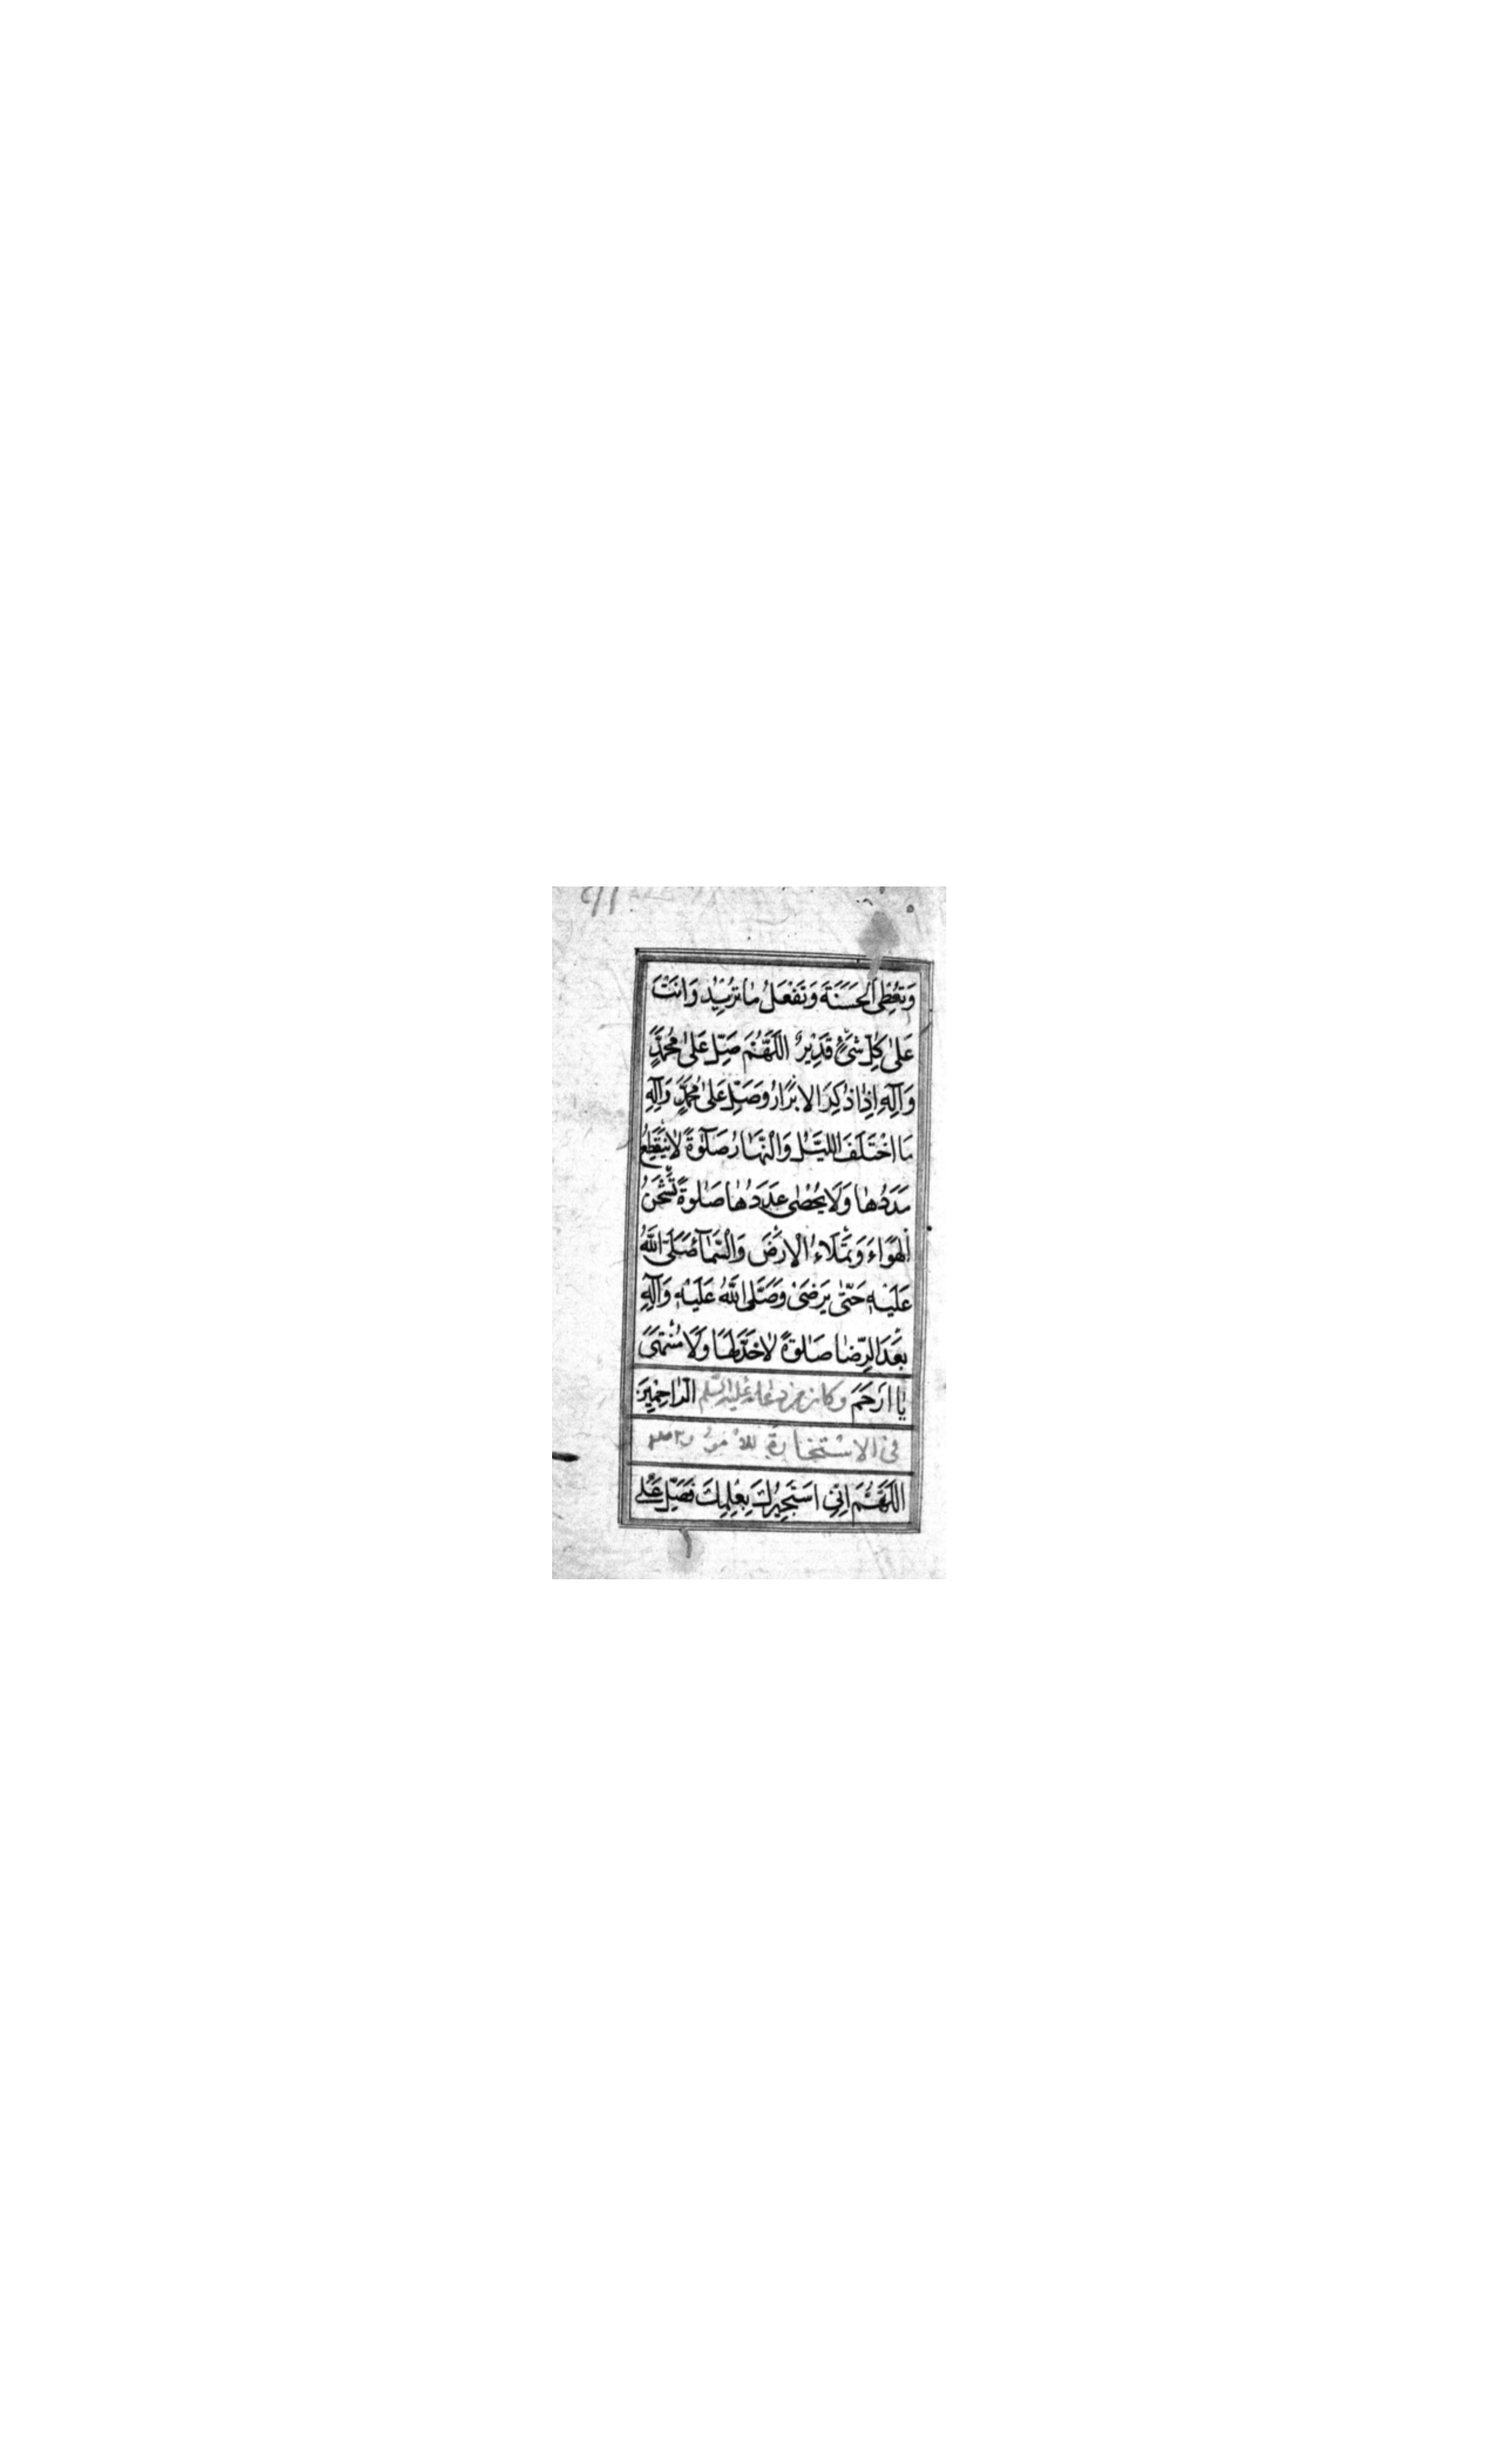 وَتُعْطِی الْحَسَنَةَ وَتَفْعَلُ مٰا تُرِیْدُ وَاَنْتَ
عَلٰی كُلِّ شَیْءٍ قَدِیْرٌ اَللّٰهُمَّ صَلِّ عَلٰی مُحَمَّدٍ
وَآلِهِ اِذٰا ذُكِرَ الْاَبْرَارُ وَصَلِّ عَلٰی مُحَمَّدٍ وَآلِهِ
مَا اخْتَلَفَ اللَّیْلُ وَالنَّهَارُ صَلٰوةً لٰا یَنْقَطِعُ
مَدَدُهٰا وَلَا یُحْصٰی عَدَدُهٰا صَلٰوةً تَشْحَنُ
الْهَوَاءَ وَتَمْلَاءُ الْاَرْضَ وَالسَّمَآءَ صَلَّی اللّٰهُ
عَلَیْهِ حَتّٰی یَرْضٰی وَصَلَّی اللّٰهُ عَلَیْهِ وَآلِهِ
بَعْدَ الرِّضٰا صَلٰوةً لٰا حَدَّ لَهَا وَلَا مُنْتَهٰی
یٰا اَرْحَمَ وكان من دعائه علیه السلم الرّٰاحِمِیْنَ
فی الاستخارة
اَللّٰهُمَّ اِنِّی اَسْتَخِیْرُكَ بِعِلْمِكَ فَصَلِّ عَلٰی